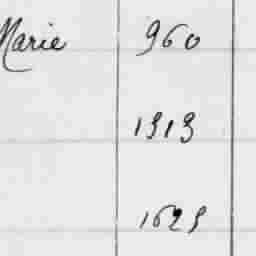 Marie 960
1313
1623